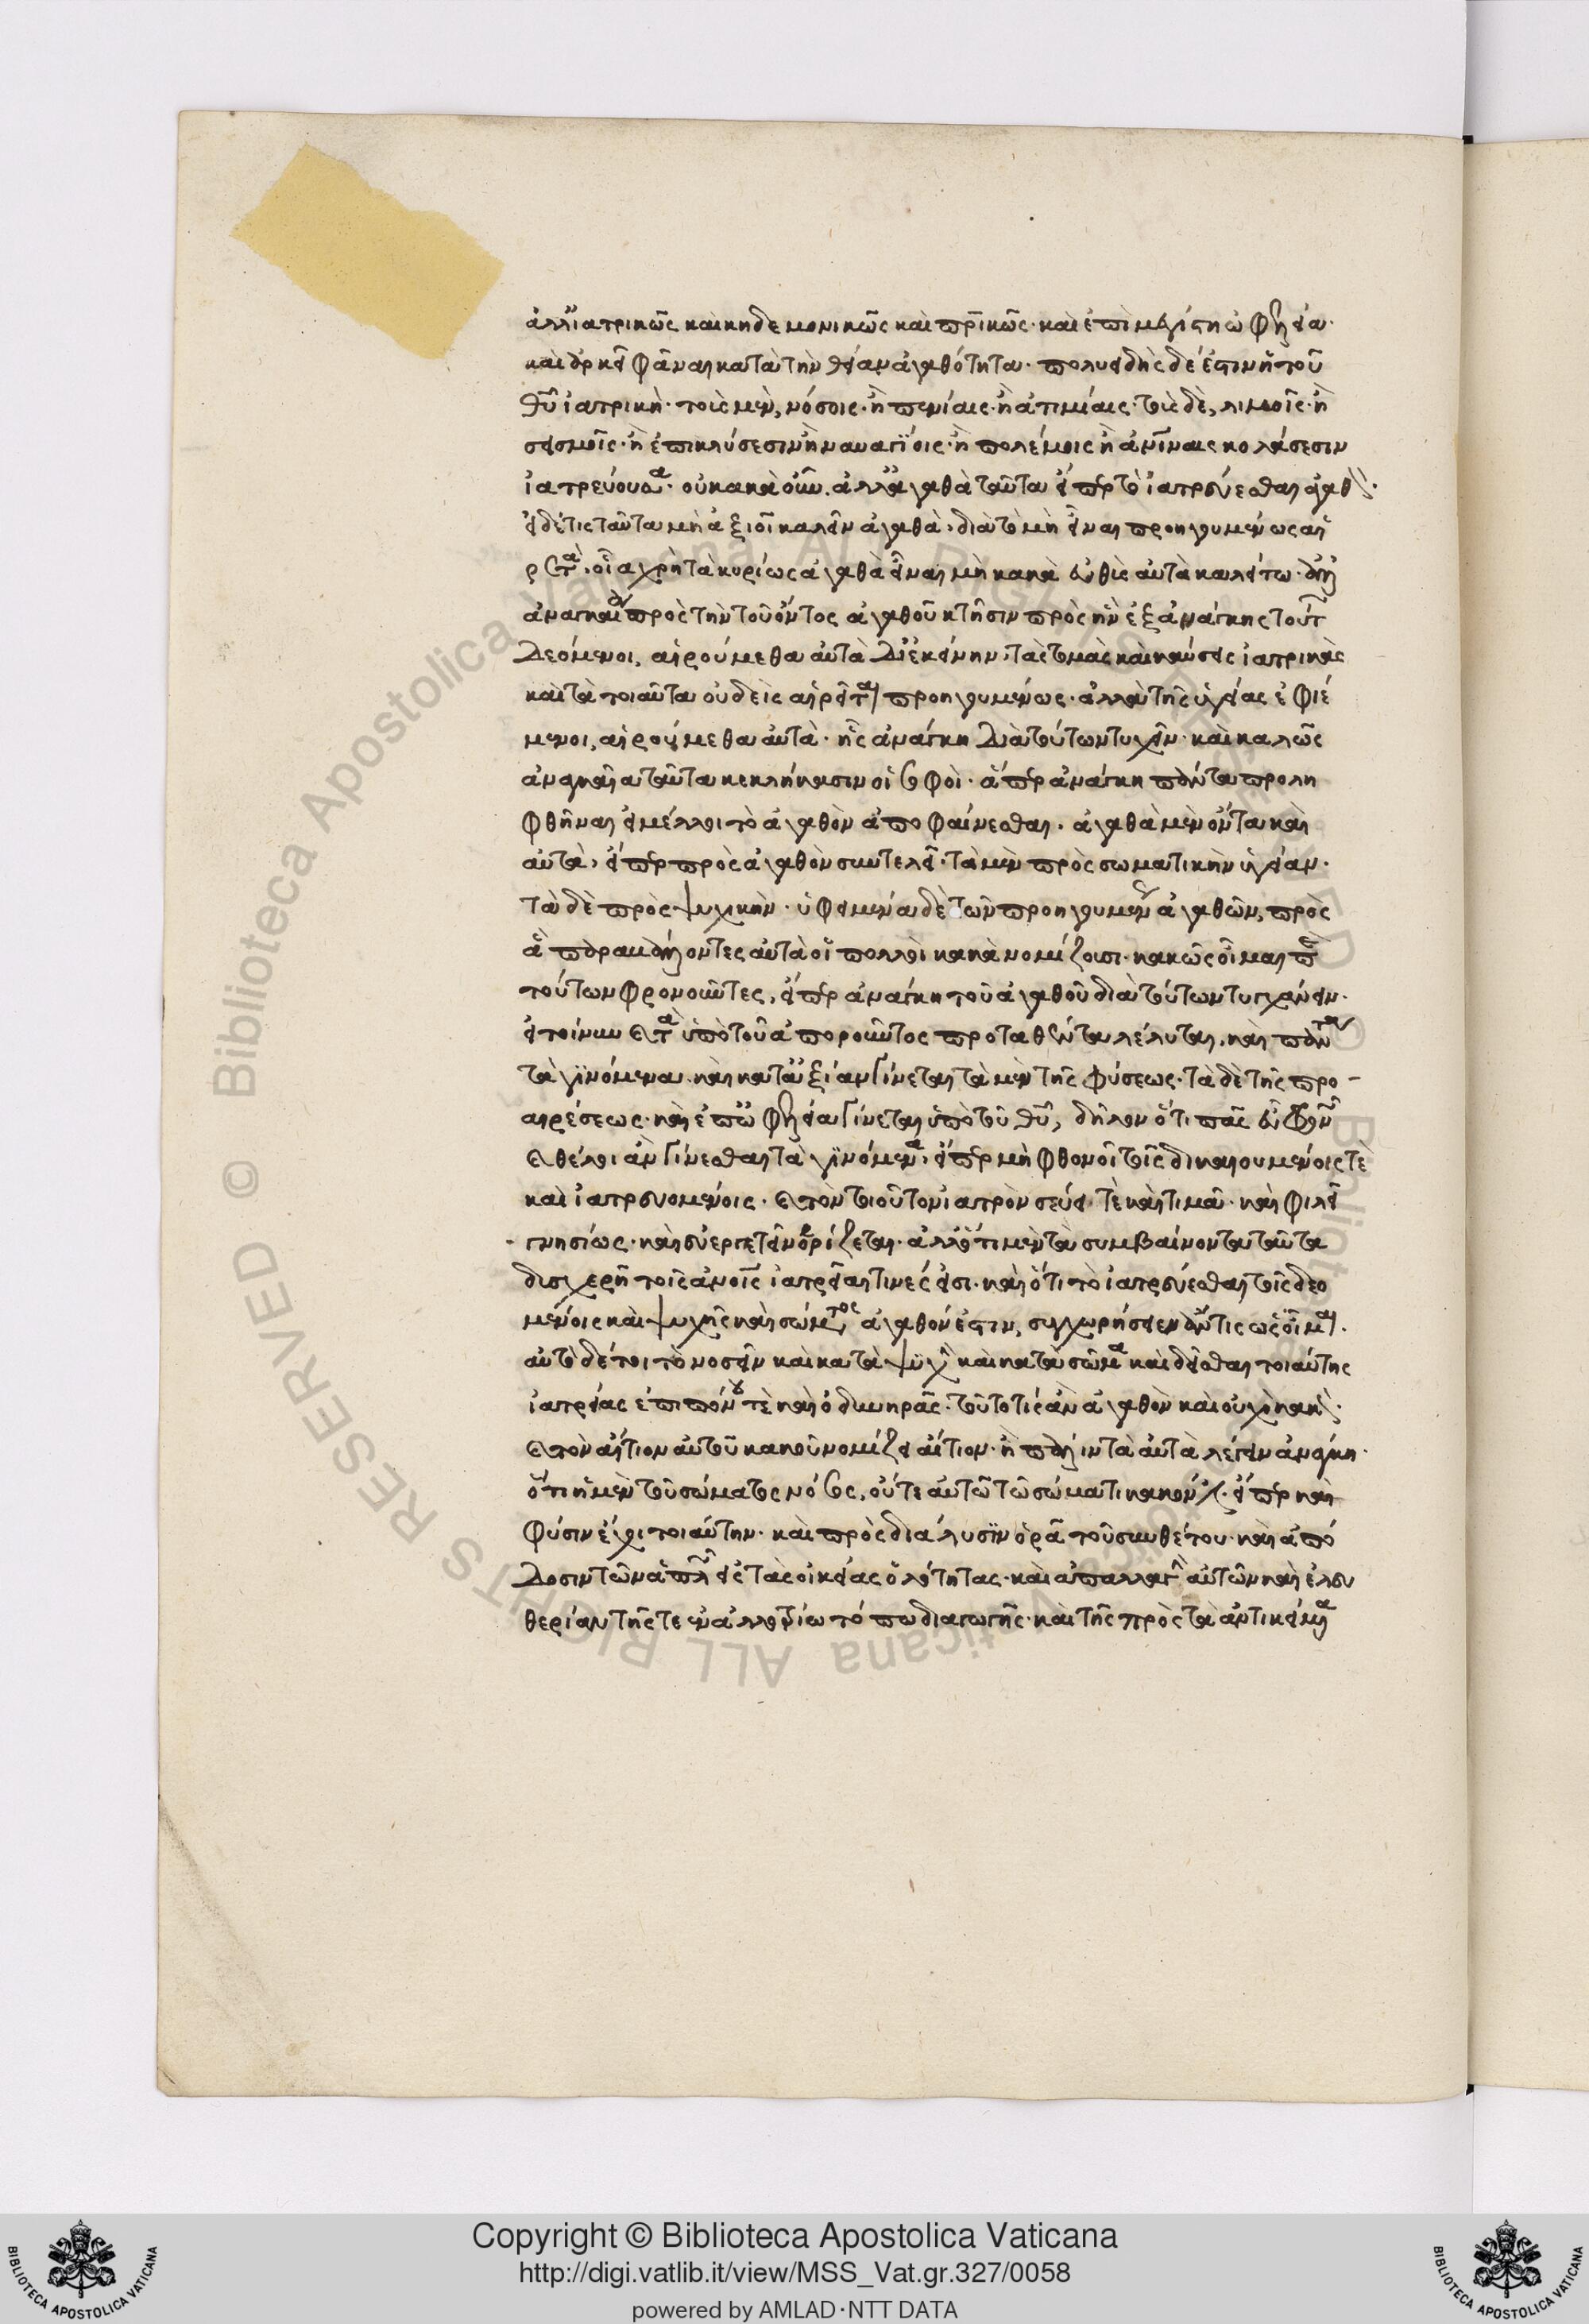 ἀλλ' ἰατρικῶς καὶ κηδεμονικῶς καὶ πρικῶς· καὶ ἐπὶ μεγίστη ὠφελεία·
καὶ θεϊκῇ φᾶναι κατὰ τὴν θείαν ἀγαθότητα· πολυειδὴς δέ ἐστιν ἡ τοῦ
θυ ἰατρική· τοῖς μὲν, νόσοις· ἢ πενίαις· ἢ ἀτιμίαις· τοῖς δὲ, λιμοῖς· ἢ
σεισμοῖς· ἢ ἐπικλύσεσιν ἢ ναυαγίοις· ἢ πολέμοις ἢ ἀνίναις κολάσεσιν
ἰατρεύουσα· οὐ κακὰ οὖν. ἀλλ' ἀγαθὰ ταῦτα εἴπερ τὸ ἰατρεύεσθαι ἀγαθόν·
εἰ δέ τις ταῦτα μὴ ἀξιοῖ καλεῖν ἀγαθὰ, διὰ τὸ μὴ εἶναι προηγουμένως αἱ
ρετὰ, οἷα χρὴ τὰ κυρίως ἀγαθὰ εἶναι μὴ κακὰ εὐθὺς αὐτὰ καλείτω·
ἀναγκαῖα πρὸς τὴν τοῦ ὄντος ἀγαθοῦ κτῆσιν πρὸς ἣν ἐξ ἀνάγκης τούτ
δεόμενοι, αἱρούμεθα αὐτὰ δι' ἐκείνην, τὰς τομὰς καὶ καύσεις ἰατρικὰς
καὶ τὰ τοιαῦτα οὐδεὶς αἱρεῖται προηγουμένως· ἀλλὰ τῆς ὑγείας ἐφιέ
μενοι, αἱρούμεθα αὐτὰ· ἧς ἀνάγκη διὰ τούτων τυχεῖν· καὶ καλῶς
ἀναγκαῖα ταῦτα κεκλήκασιν οἱ σοφοὶ· ἅπερ ἀνάγκη πάντα προλη
φθῆναι εἰ μέλλοι τὸ ἀγαθὸν ἀποφαίνεσθαι. ἀγαθὰ μὲν ὄντα καὶ
αὐτὰ, εἴπερ πρὸς ἀγαθὸν συντελεῖ· τὰ μὲν πρὸς σωματικὴν ὑγείαν·
τὰ δὲ πρὸς ψυχικήν· ὑφειμένα δὲ τῶν προηγουμένων ἀγαθῶν, πρὸς
ἃ παραμετροῦντες αὐτὰ οἱ πολλοὶ κακὰ νομίζουσι· κακῶς οἶμαι περὶ
τούτων φρονοῦντες, εἴπερ ἀνάγκη τοῦ ἀγαθοῦ διὰ τούτων τυγχάνειν·
εἰ τοίνυν ετα ὑπὸ τοῦ ἀποροῦντος προταθέντα λέλυται, καὶ πάντα
τὰ γινόμενα καὶ κατ' ἀξίαν γίνεται τὰ μὲν τῆς φύσεως· τὰ δὲ τῆς προ-
αιρέσεως· καὶ ἐπ' ὠφελεία γίνεται ὑπὸ τοῦ θυ, δῆλον ὅτι πᾶς εὖ φρονῶν
ἐθέλοι ἂν γίνεσθαι τὰ γινόμενα, εἴπερ μὴ φθονοῖ τοῖς δικαιουμένοις τὲ
καὶ ἰατρευομένοις· ετὸν τοιοῦτον ἰατρὸν σέβει τὲ καὶ τιμᾶ· καὶ φιλεῖ
γνησίως· καὶ εὐεργέτην ὁρίζεται· ἀλλ' ὅτι μὲν τὰ συμβαίνοντα ταῦτα
δυσχερῆ τοῖς ἀνοις ἰατρεῖαι τινές εἰσι· καὶ ὅτι τὸ ἰατρεύεσθαι τοῖς δεο
μένοις καὶ ψυχῆς καὶ σώματος ἀγαθόν ἐστιν, συγχωρήσειεν ἄν τις ὡς οἶμαι·
αὐτὸ δέ τοι τὸ νοσεῖν καὶ κατὰ ψυχὴν καὶ κατὰ σῶμα καὶ δεῖσθαι τοιαύτης
ἰατρείας ἐπιπόνου τὲ καὶ ὀδυνηρᾶς· τοῦτο τίς ἂν ἀγαθὸν καὶ οὐχὶ κακὸν·
ετὸν αἴτιον αὐτοῦ κακοῦ νομίζει αἴτιον· ἢ πάλιν τὰ αὐτὰ λέγειν ἀνάγκη·
ὅτι ἡ μὲν τοῦ σώματος νόσος, οὔτε αὐτῶ τῶ σώματι κακόν, εἴπερ καὶ
φύσιν ἔχει τοιαύτην· καὶ πρὸς διάλυσιν ὁρᾶ τοῦ συνθέτου· καὶ ἀπό
δοσιν τῶν ἁπλῶν εἰς τὰς οἰκείας ὁλότητας· καὶ ἀπαλλαγὴν αὐτῶν καὶ ἐλευ
θερίαν τῆς τε ἐν ἀλλοτρίω τόπω διαγωγῆς· καὶ τῆς πρὸς τὰ ἀντικείμενα
Copyright © Biblioteca Apostolica Vaticana
http://digi.vatlib.it/view/MSS_Vat.gr.327/0058
powered by AMLAD·NTT DATA